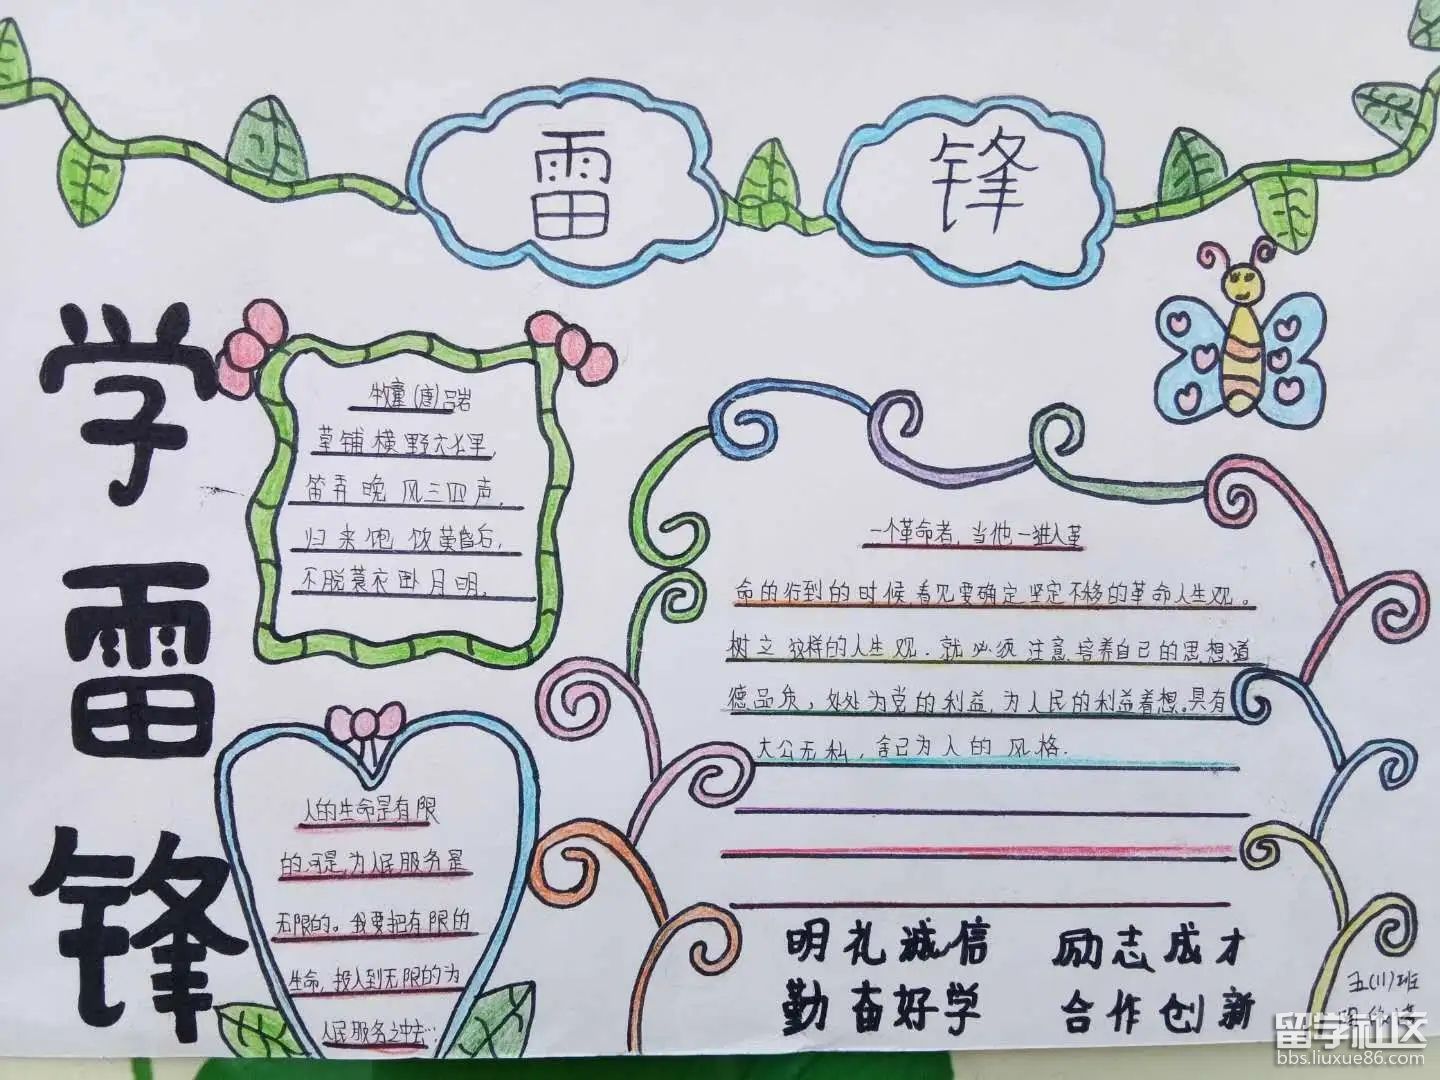 雷 锋
学
雷
锋
牧童(唐)吕岩
草铺横野六七里,
笛弄晚风三四声.
归来饱饭黄昏后,
不脱蓑衣卧月明.
人的生命是有限
的.可是,为人民服务是
无限的。我要把有限的
生命,投入到无限的为
人民服务之中去…
一个革命者,当他一进入革
命的行到的时候,看见要确定坚定不移的革命人生观。
树立这样的人生观.就必须注意培养自己的思想道
德品质,处处为党的利益,为人民的利益着想.具有
大公无私,舍己为人的风格.
明礼诚信 励志成才
勤奋好学 合作创新
五(11)班
留学社区
bbs.liuxue86.com